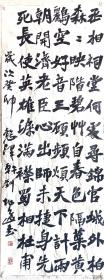 丞相祠堂何處尋錦官城外柏
森〻映階碧草自春色隔葉黃
鸝空好音三顧頻煩天下計兩
朝開濟老臣心出師未捷身先
死長使英雄淚滿襟蜀相杜甫
歲次